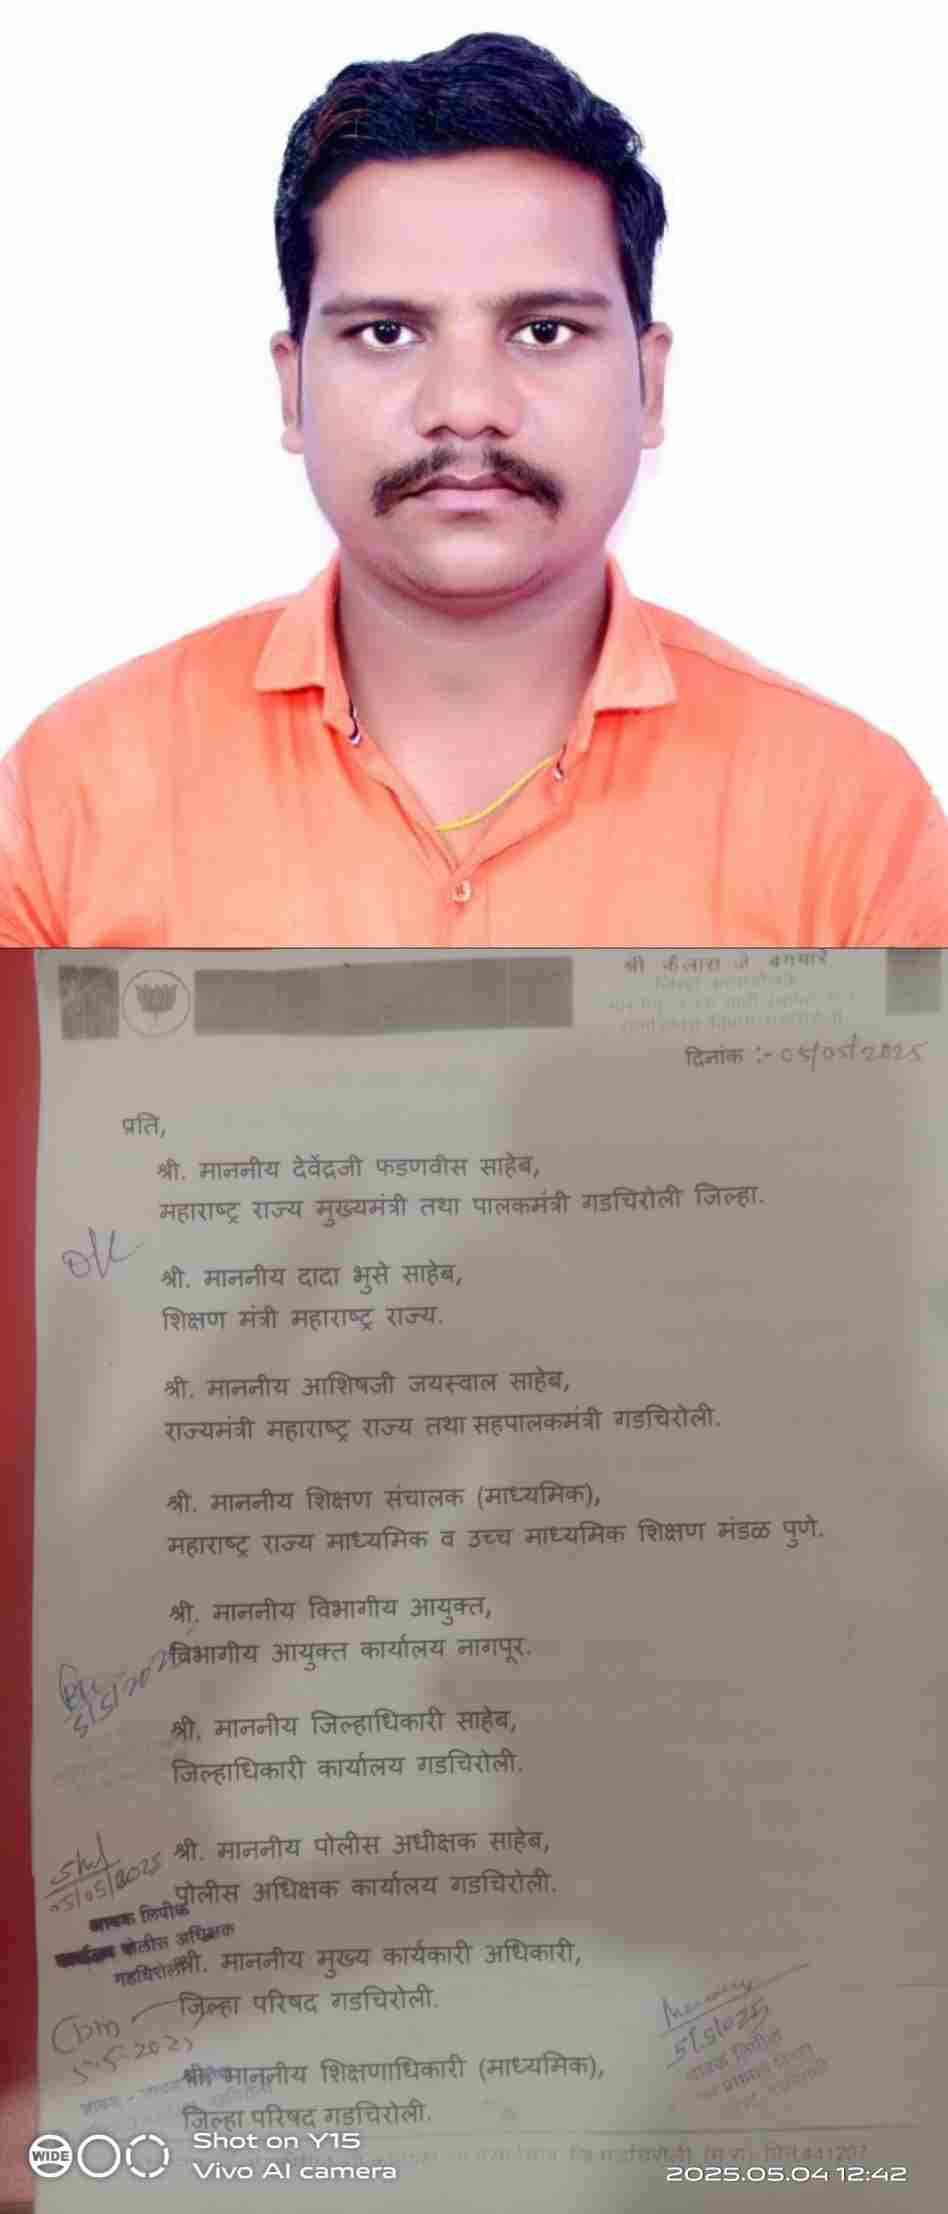 श्री कैलास जे
दिनांक :- 05/05/2025
प्रति,
श्री. माननीय देवेंद्रजी फडणवीस साहेब,
महाराष्ट्र राज्य मुख्यमंत्री तथा पालकमंत्री गडचिरोली जिल्हा.
श्री. माननीय दादा भुसे साहेब,
शिक्षण मंत्री महाराष्ट्र राज्य.
श्री. माननीय आशिषजी जयस्वाल साहेब,
राज्यमंत्री महाराष्ट्र राज्य तथा सहपालकमंत्री गडचिरोली.
श्री. माननीय शिक्षण संचालक (माध्यमिक),
महाराष्ट्र राज्य माध्यमिक व उच्च माध्यमिक शिक्षण मंडळ पुणे.
श्री. माननीय विभागीय आयुक्त,
विभागीय आयुक्त कार्यालय नागपूर.
5/5/2025
श्री. माननीय जिल्हाधिकारी साहेब,
जिल्हाधिकारी कार्यालय गडचिरोली.
श्री. माननीय पोलीस अधीक्षक साहेब,
05/05/2025
पोलीस अधिक्षक कार्यालय गडचिरोली.
आवक लिपीक
कार्यालय पोलीस अधिक्षक
गडचिरोली
श्री. माननीय मुख्य कार्यकारी अधिकारी,
जिल्हा परिषद गडचिरोली.
5/5/025
आवक लिपीक
श्री. माननीय शिक्षणाधिकारी (माध्यमिक),
जिल्हा परिषद गडचिरोली.
WIDE
Shot on Y15
Vivo AI camera
2025.05.04 12:42